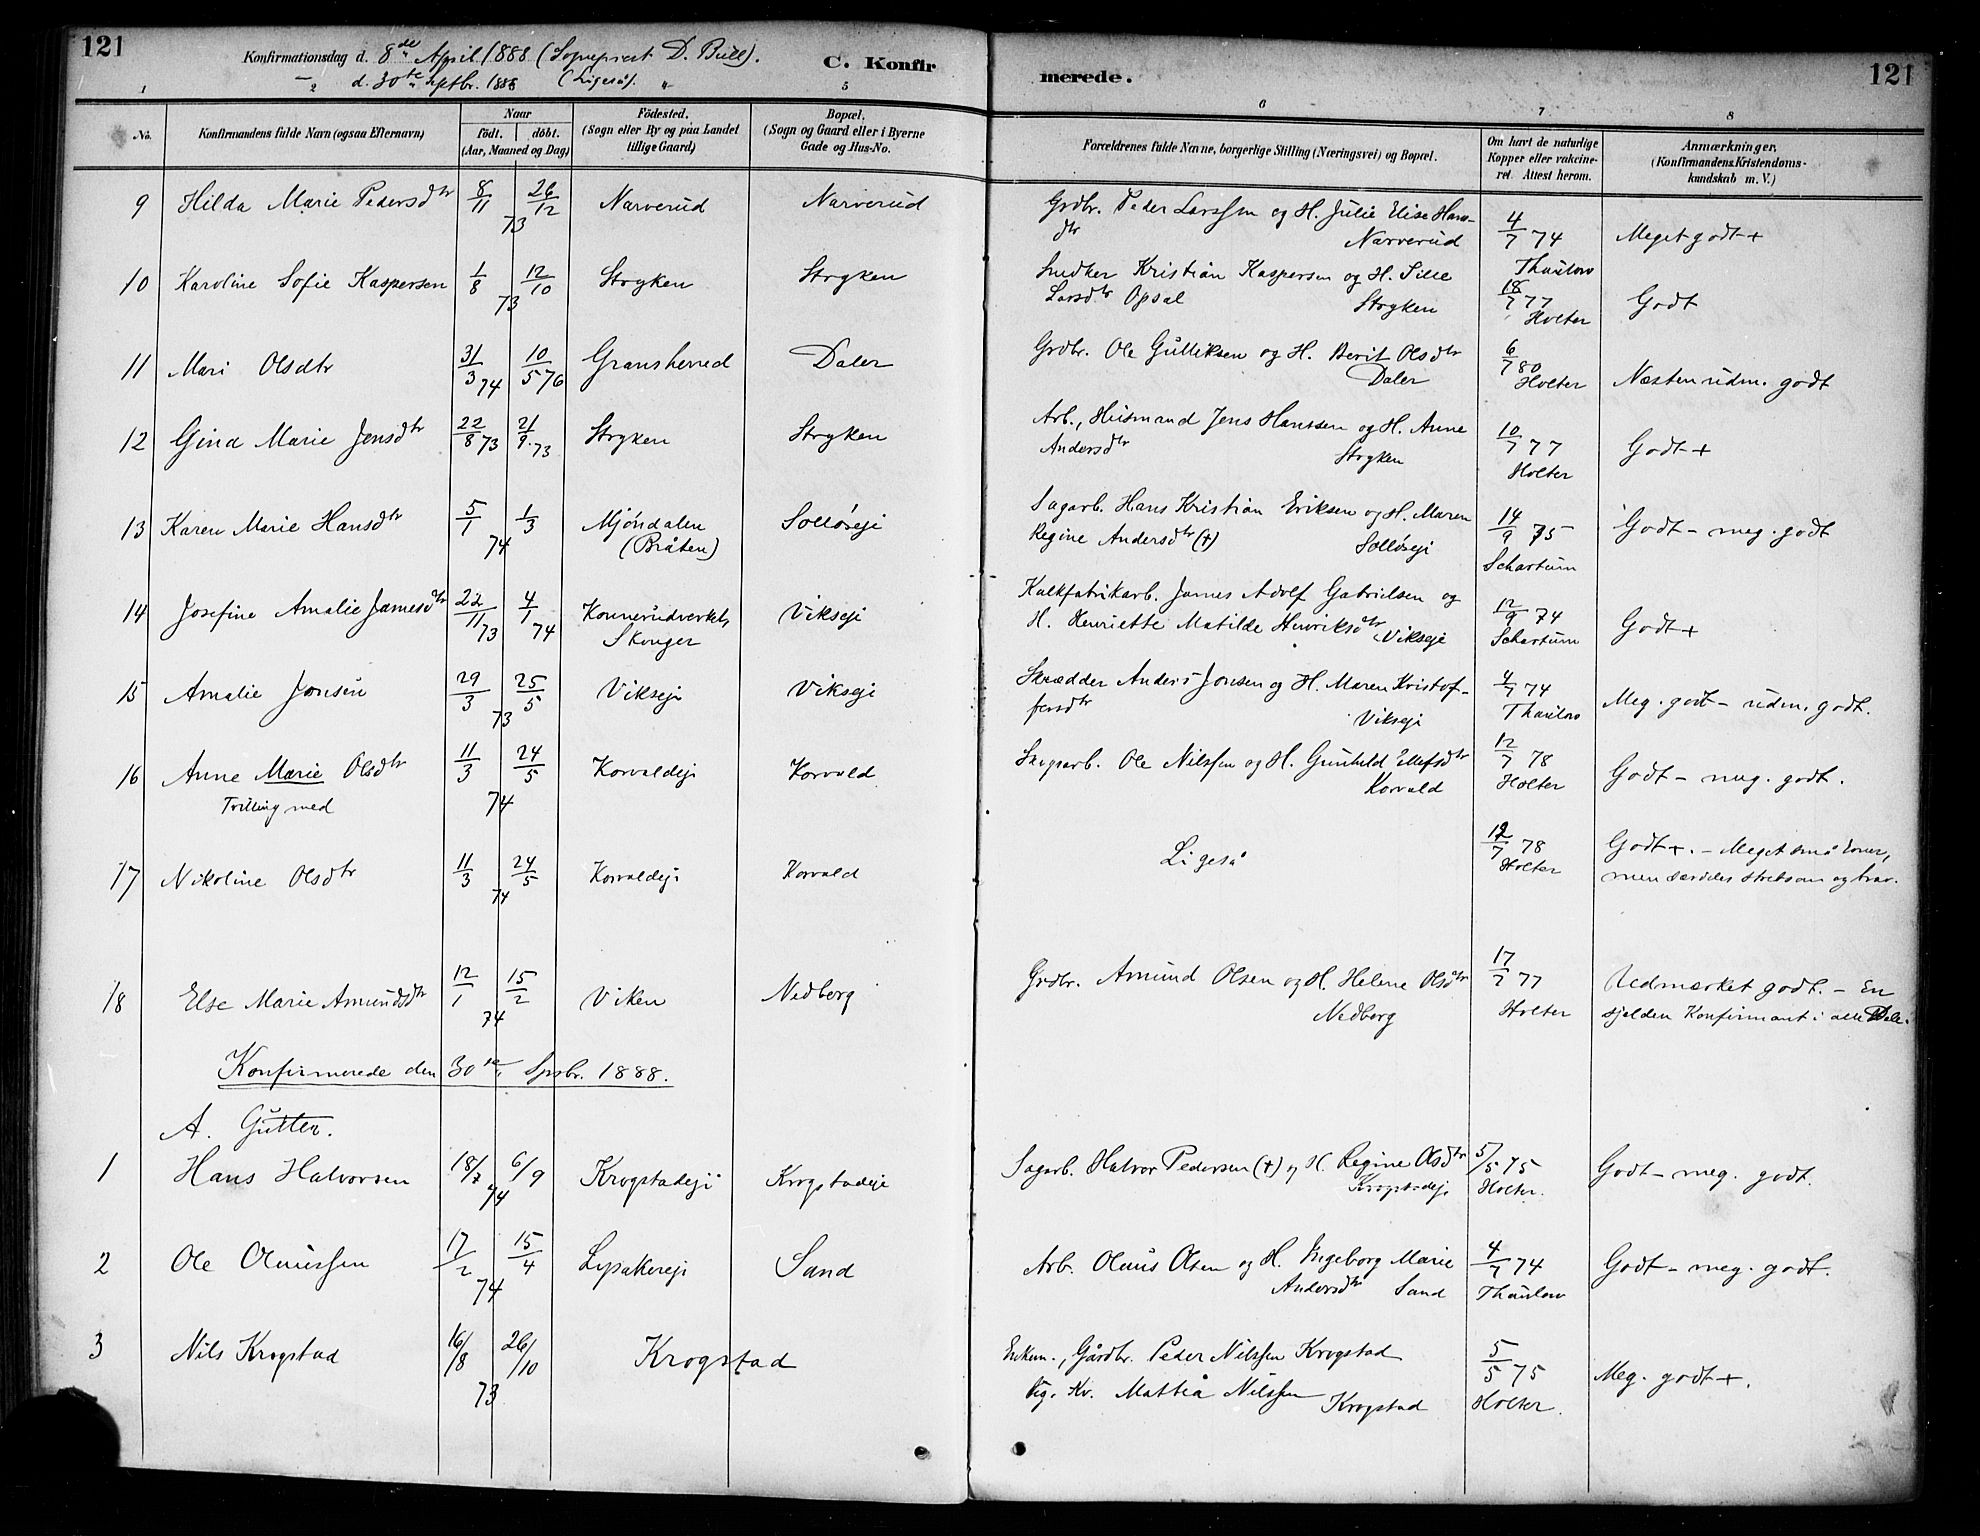 121
Konfirmationsdag d. 8de April 1888 (Sognepræst D. Bull).
— d. 30te Septbr. 1888 (Ligeså). "
C. Konfirmerede.
121
1 2 5 6 7 8
No. Konfirmandens fulde Navn (ogsaa Efternavn) Naar født. døbt. (Aar, Maaned og Dag) Fødested. (Sogn eller By og paa Landet tillige Gaard) Bopæl. (Sogn og Gaard eller i Byerne Gade og Hus-No. Forældrenes fulde Navne, borgerlige Stilling (Næringsvei) og Bopæl. Om havt de naturlige Kopper eller vakcineret. Attest herom. Anmærkninger. (Konfirmandens Kristendomskundskab m. V.)
9 Hilda Marie Pedersdtr 8/11 26/12 73 Narverud Narverud Grdbr. Peder Larssen og H. Julie Elise Hansdtr Narverud 4/7 74 Thaulow Meget godt +
10 Karoline Sofie Kaspersen 1/8 12/10 73 Stryken Stryken Snedker Kristian Kaspersen og H. Sille Larsdtr Opsal Stryken 18/7 77 Holter Godt
11 Mari Olsdtr 31/3 74 10/5 76 Gransherred Daler Grdbr. Ole Gulliksen og H. Berit Olsdtr Daler 6/7 80 Holter Næsten udm. godt
12 Gina Marie Jensdtr 22/8 73 21/9 73 Stryken Stryken Arb., Husmand Jens Hanssen og H. Anne Andersdtr Stryken 10/7 77 Holter Godt +
13 Karen Marie Hansdtr 5/1 1/3 74 Mjöndalen (Bråten) Solløseje Sagarb. Hans Kristian Eriksen og H. Maren Regine Andersdtr (+) Solløseji 14/9 75 Schartum Godt - meg. godt
14 Josefine Amalie Jamesdtr 22/11 73 4/1 74 Konnerudverket, Skouger Vikseje Kalkfabrikarb. James Adolf Gabrielsen og H. Henriette Matilde Henriksdtr Vikseje 12/9 74 Schartum Godt +
15 Amalie Jonsen 29/3 25/5 73 Vikseji Vikseje Skrædder Anders Jonsen og H. Maren Kristoffersdtr Vikseji 4/7 74 Thaulow Meg. godt - udm. godt.
16 Anne Marie Olsdtr 11/3 24/5 74 Korvaldeji Korvald Skogsarb. Ole Nilssen og H. Gunhild Ellefsdtr Korvald 12/7 78 Holter Godt - meg. godt.
Tvilling med
17 Nikoline Olsdtr 11/3 24/5 74 Korvaldeji Korvald Ligeså 12/7 78 Holter Godt +. - Meget små Evner, men særdeles stræbsom og brav.
18 Else Marie Amundsdtr 12/1 15/2 74 Viken Nedberg Grdbr. Amund Olsen og H. Helene Olsdtr Nedberg 17/7 77 Holter Udmærket godt. - En sjelden Konfirmant i alle Dele.
Konfirmerede den 30te Sptbr. 1888.
A. Gutter.
1 Hans Halvorsen 18/7 6/9 74 Krogstadeji Krogstadeje Sagarb. Halvor Pedersen (+) og H. Regine Olsdtr Krogstadeji 5/5 75 Holter. Godt - meg. godt.
2 Ole Olaussen 17/2 15/4 74 Lysakereji Sand Arb. Olaus Olsen og H. Ingeborg Marie Andersdtr Sand 4/7 74 Thaulow Godt - meg. godt.
3 Nils Krogstad 16/8 26/10 73 Krogstad Enkem., Gårdbr. Peder Nilssen Krogstad Ug. Kv. Mattia Nilssen Krogstad 5/5 75 Holter. Meg. godt +.